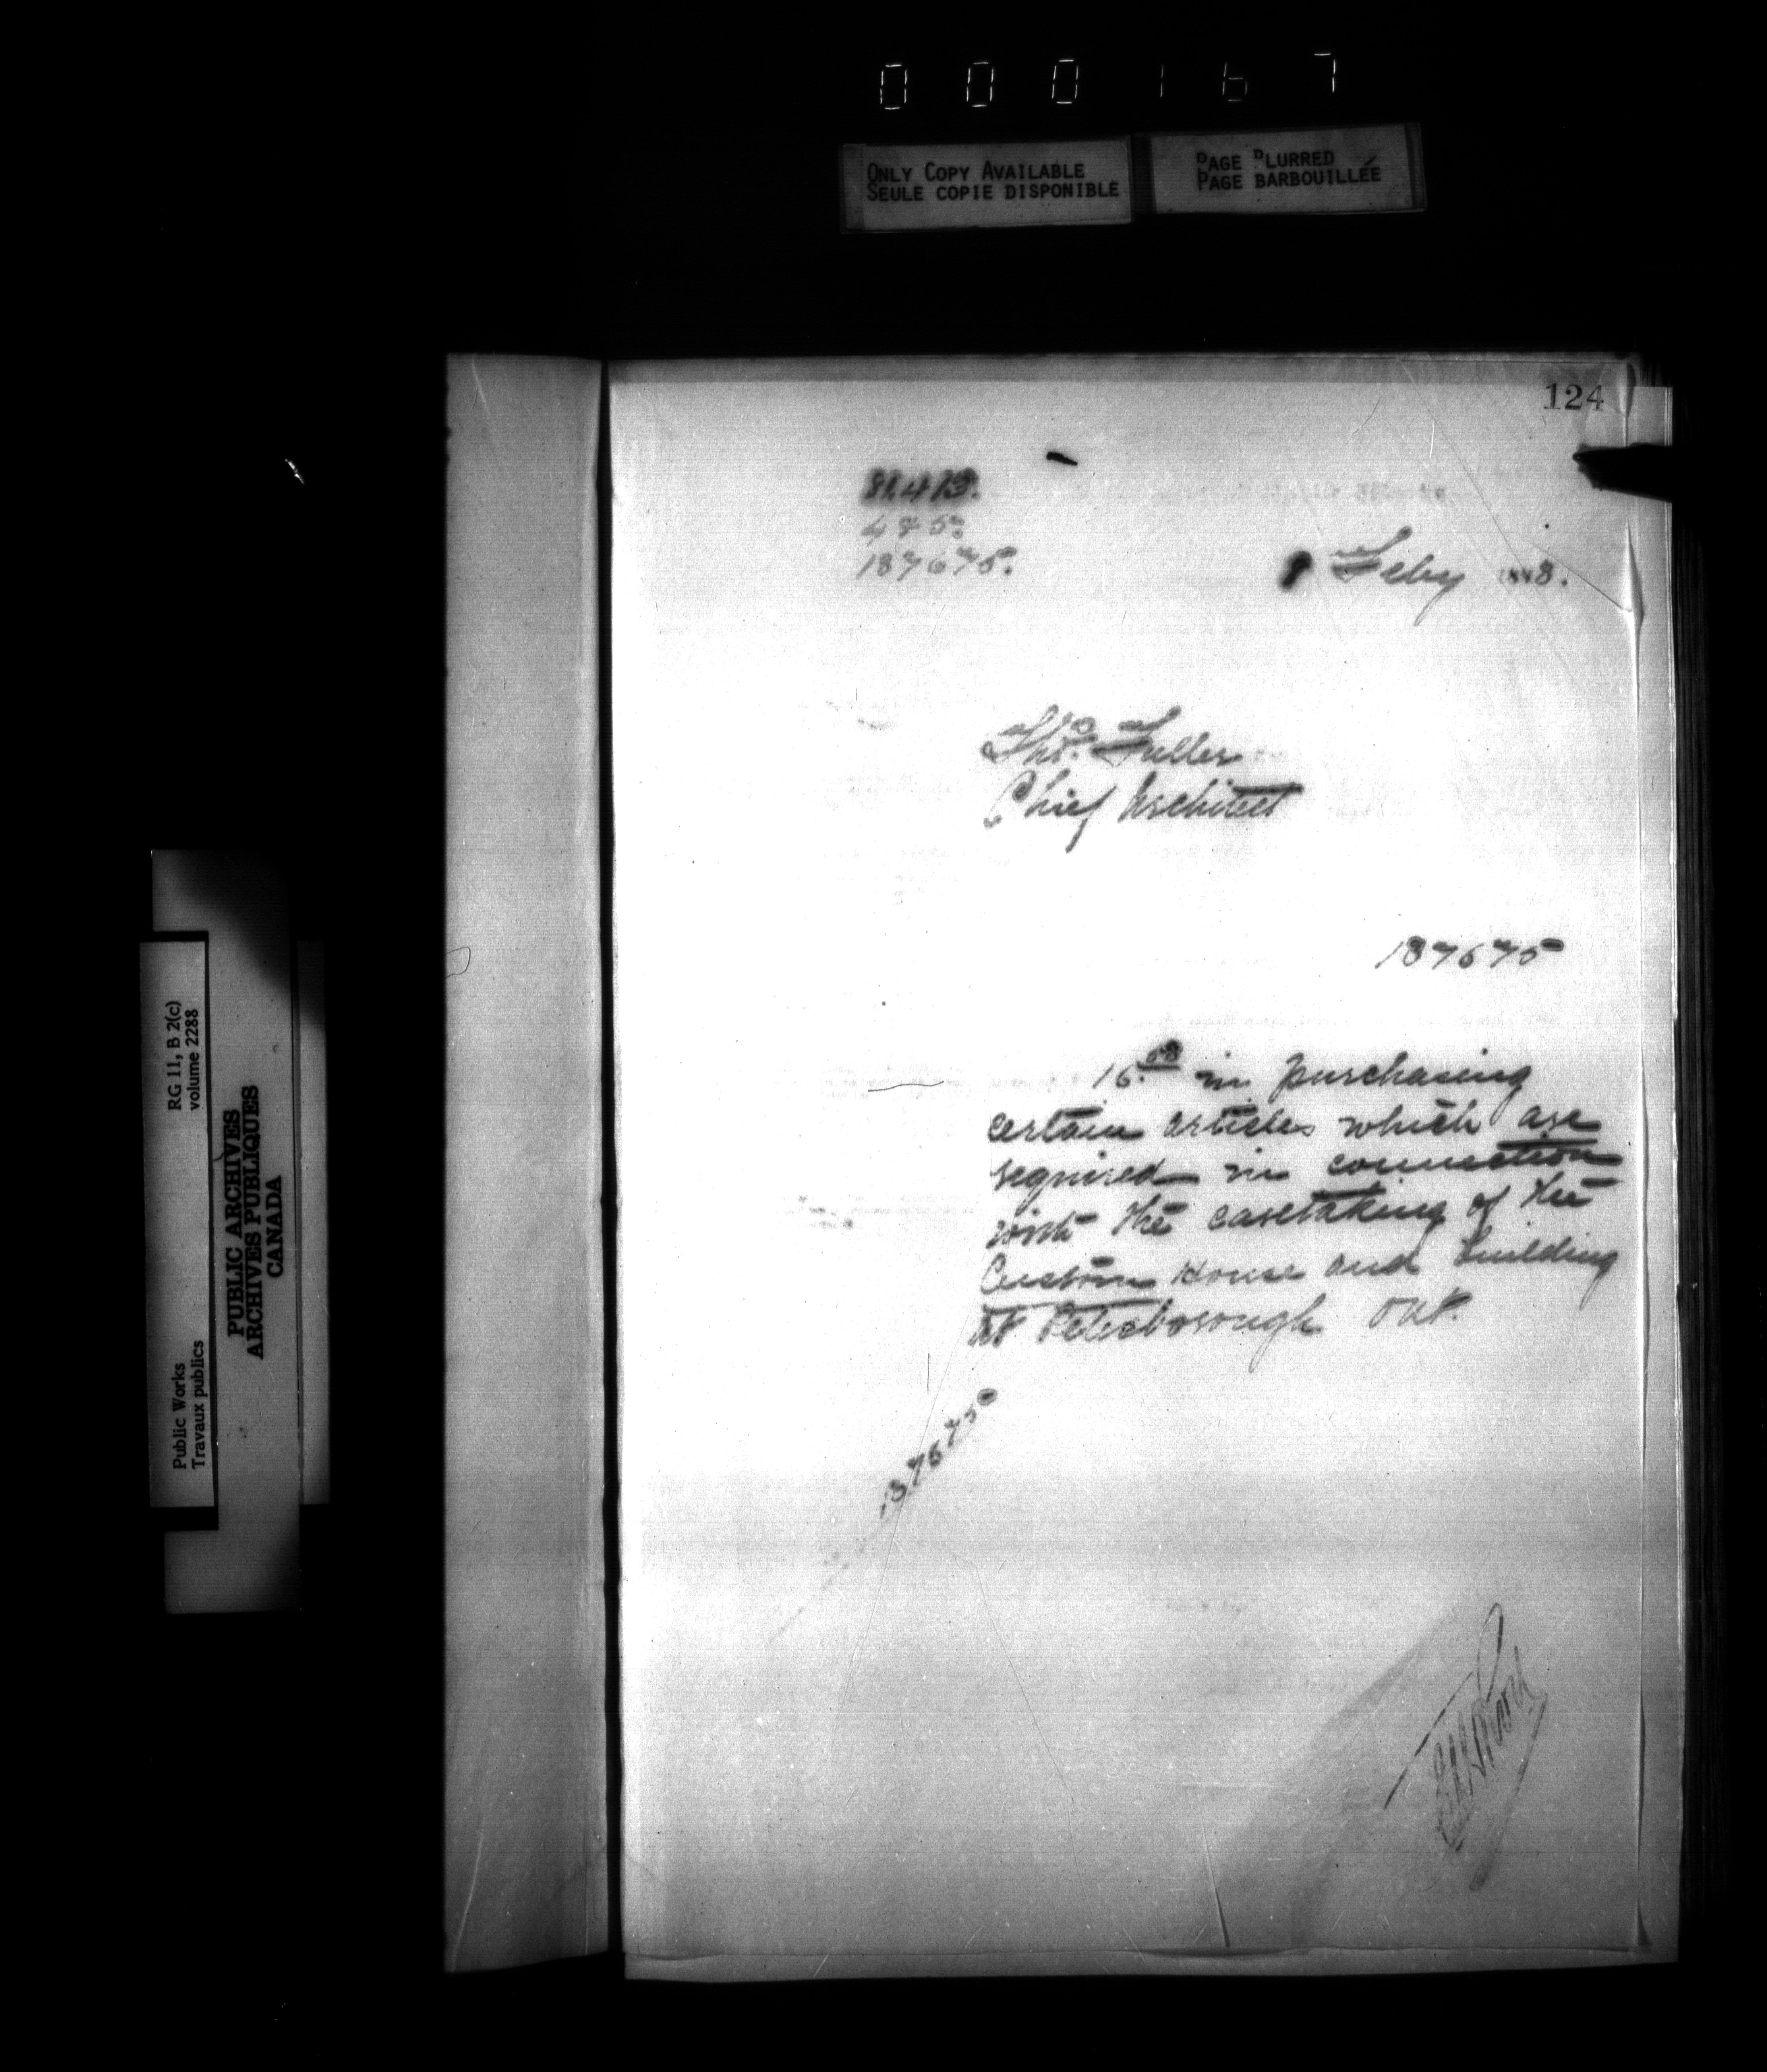 000167
ONLY COPY AVAILABLE
SEULE COPIE DISPONIBLE
PAGE BLURRED
PAGE BARBOUILLÉE
124
475.
187675.
Feby 1888.
Thos. Fuller
Chief Architect
187675
in purchasing
certain articles which are
required in connection
with the caretaking of the
Custom House and building
at Peterborough Ont.
187675
Public Works
Travaux publics
RG 11, B 2(c)
volume 2288
PUBLIC ARCHIVES
ARCHIVES PUBLIQUES
CANADA